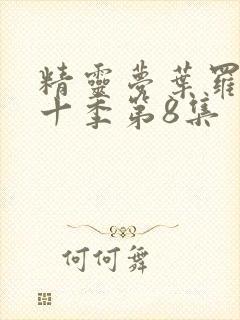 精靈夢葉羅
十季第8集
何何舞